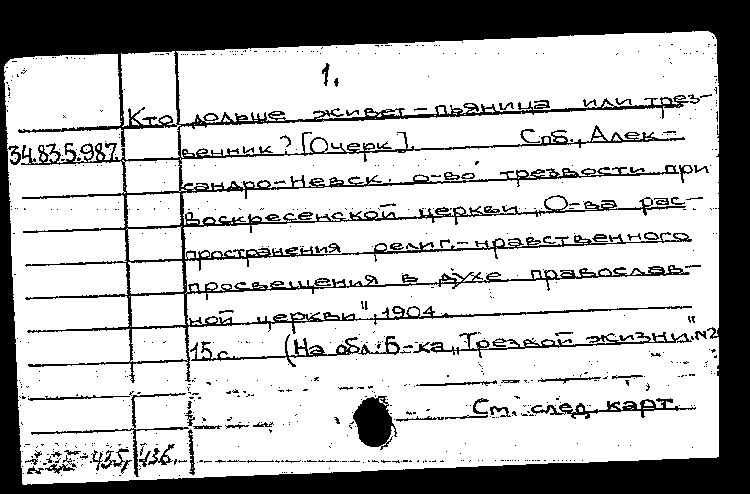 1.
Кто дольше живет – пьяница или трез-
34.83.5.987. венник? [Очерк]. Спб., Алек-
сандро-Невск. о-во трезвости при
Воскресенской церкви „О-ва рас-
пространения религ.-нравственного
просвещения в духе православ-
ной церкви", 1904.
15 с. (На обл.: Б-ка „Трезвой жизни". №
См. след. карт.
435, 436.